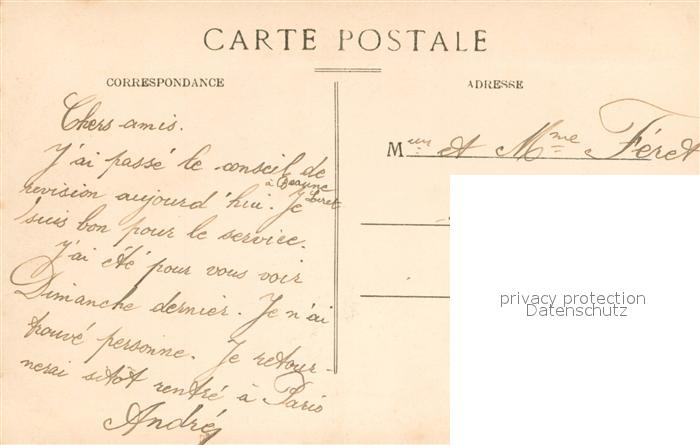 CARTE POSTALE
CORRESPONDANCE
Chers amis.
J'ai passé le conseil de
à Beaune
revision aujourd'hui. Je
Loiret
suis bon pour le service.
J'ai été pour vous voir
Dimanche dernier. Je n'ai
trouvé personne. Je retour-
nerai sitôt rentré à Paris
André
ADRESSE
Meur et Mme Féret
privacy protection
Datenschutz